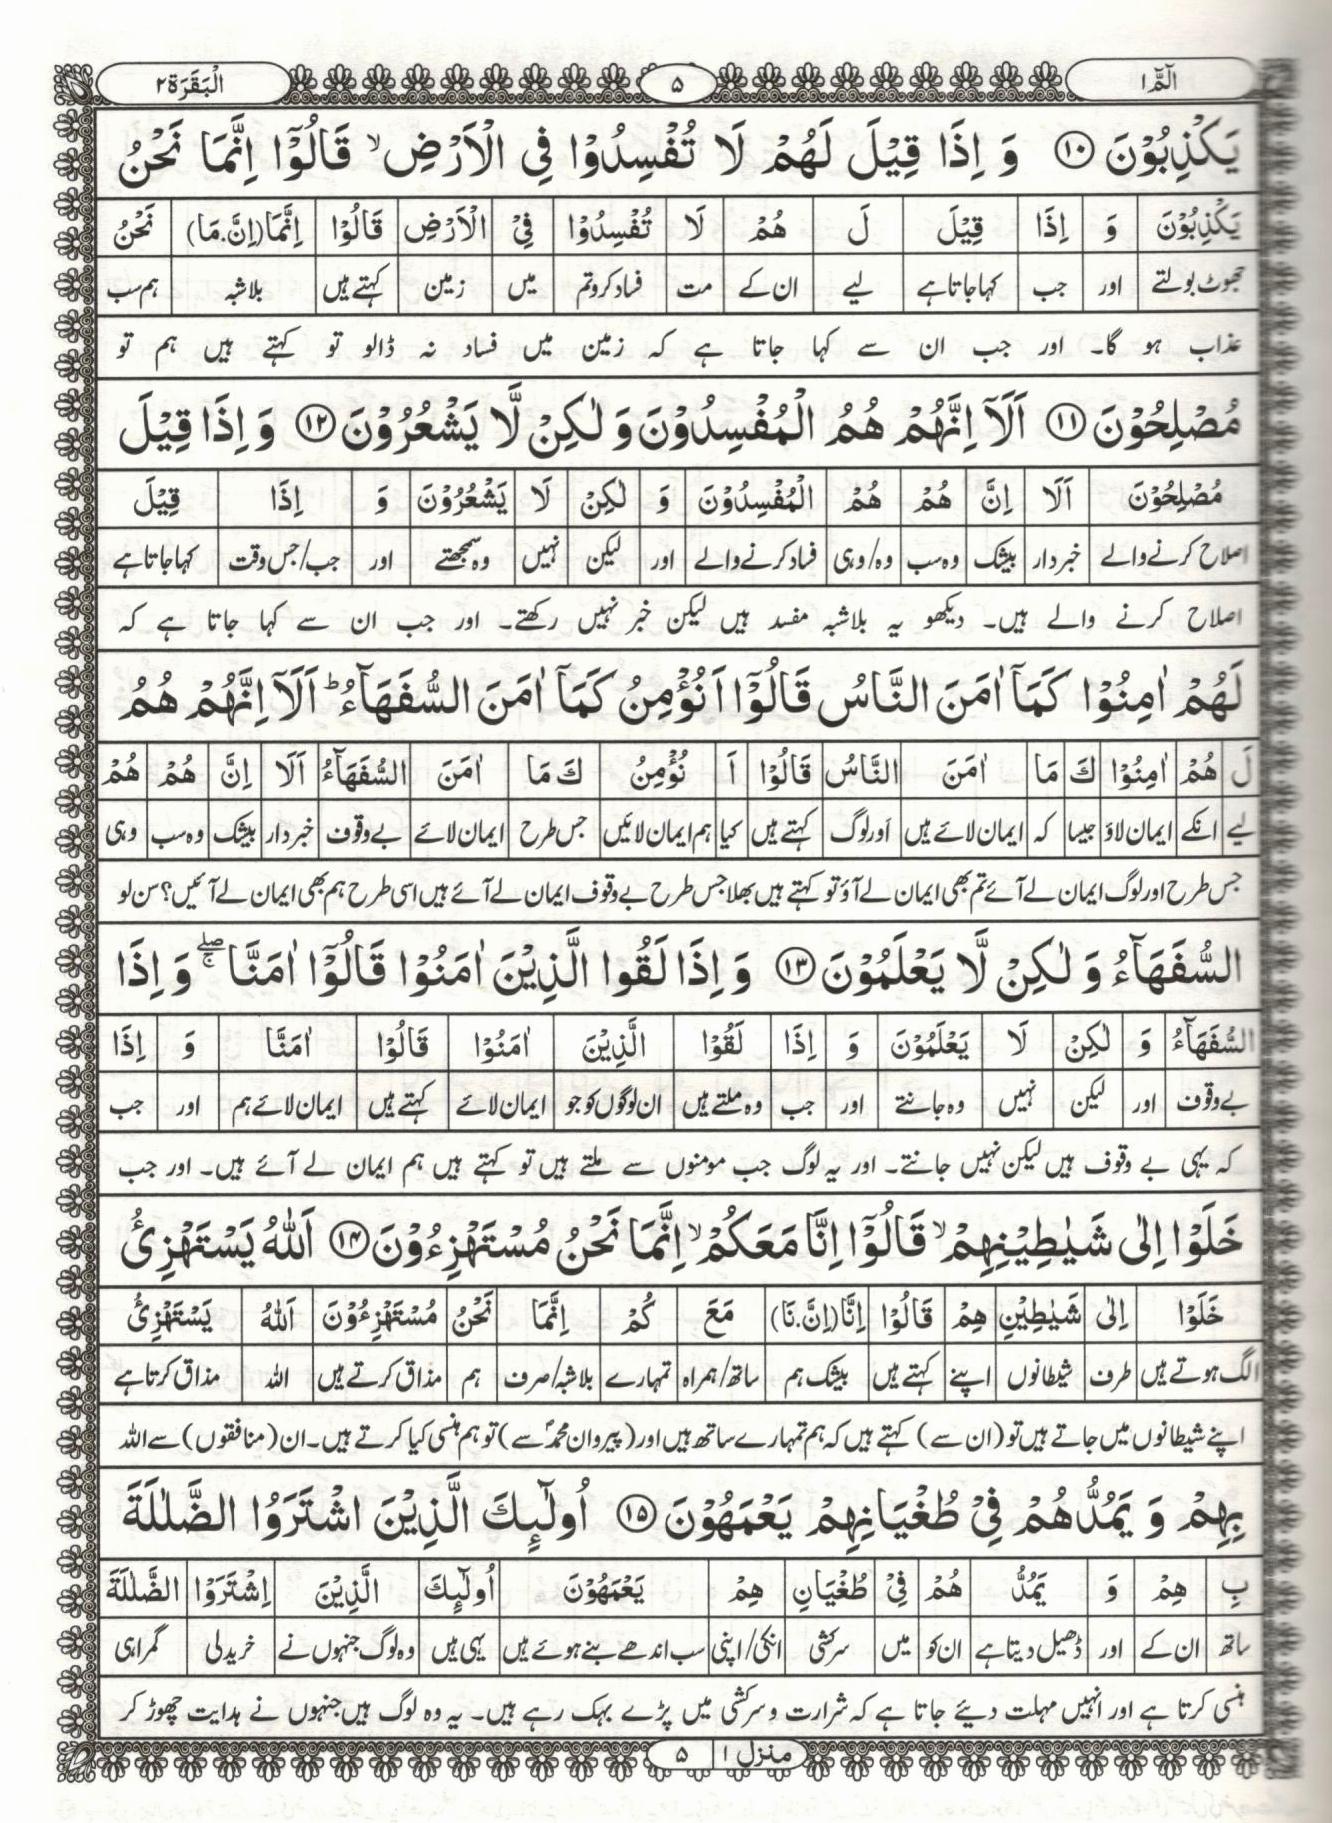 الٓمّٓ ۱
۵
الْبَقَرَة ۲
يَكْذِبُوْنَ ۝۱۰ وَ اِذَا قِيْلَ لَهُمْ لَا تُفْسِدُوْا فِي الْاَرْضِ ۙ قَالُوْٓا اِنَّمَا نَحْنُ
يَكْذِبُوْنَ وَ اِذَا قِيْلَ لَ هُمْ لَا تُفْسِدُوْا فِيْ الْاَرْضِ قَالُوْا اِنَّمَا(اِنَّ.مَا) نَحْنُ
جھوٹ بولتے اور جب کہا جاتا ہے لیے ان کے مت فساد کرو تم میں زمین کہتے ہیں بلاشبہ ہم سب
عذاب ہو گا۔ اور جب ان سے کہا جاتا ہے کہ زمین میں فساد نہ ڈالو تو کہتے ہیں ہم تو
مُصْلِحُوْنَ ۝۱۱ اَلَآ اِنَّهُمْ هُمُ الْمُفْسِدُوْنَ وَ لٰكِنْ لَّا يَشْعُرُوْنَ ۝۱۲ وَ اِذَا قِيْلَ
مُصْلِحُوْنَ اَلَا اِنَّ هُمْ هُمْ الْمُفْسِدُوْنَ وَ لٰكِنْ لَا يَشْعُرُوْنَ وَ اِذَا قِيْلَ
اصلاح کرنے والے خبردار بیشک وہ سب وہ/وہی فساد کرنے والے اور لیکن نہیں وہ سمجھتے اور جب/جس وقت کہا جاتا ہے
اصلاح کرنے والے ہیں۔ دیکھو یہ بلاشبہ مفسد ہیں لیکن خبر نہیں رکھتے۔ اور جب ان سے کہا جاتا ہے کہ
لَهُمْ اٰمِنُوْا كَمَآ اٰمَنَ النَّاسُ قَالُوْٓا اَنُؤْمِنُ كَمَآ اٰمَنَ السُّفَهَآءُ ؕ اَلَآ اِنَّهُمْ هُمُ
لَ هُمْ اٰمِنُوْا كَ مَا اٰمَنَ النَّاسُ قَالُوْا اَ نُؤْمِنُ كَ مَا اٰمَنَ السُّفَهَآءُ اَلَا اِنَّ هُمْ هُمْ
لیے انکے ایمان لاؤ جیسا کہ ایمان لائے ہیں اور لوگ کہتے ہیں کیا ہم ایمان لائیں جس طرح ایمان لائے بے وقوف خبردار بیشک وہ سب وہی
جس طرح اور لوگ ایمان لے آئے تم بھی ایمان لے آؤ تو کہتے ہیں بھلا جس طرح بے وقوف ایمان لے آئے ہیں اسی طرح ہم بھی ایمان لے آئیں؟ سن لو
السُّفَهَآءُ وَ لٰكِنْ لَّا يَعْلَمُوْنَ ۝۱۳ وَ اِذَا لَقُوا الَّذِيْنَ اٰمَنُوْا قَالُوْٓا اٰمَنَّا ۚۖ وَ اِذَا
السُّفَهَآءُ وَ لٰكِنْ لَا يَعْلَمُوْنَ وَ اِذَا لَقُوْا الَّذِيْنَ اٰمَنُوْا قَالُوْا اٰمَنَّا وَ اِذَا
بے وقوف اور لیکن نہیں وہ جانتے اور جب وہ ملتے ہیں ان لوگوں کو جو ایمان لائے کہتے ہیں ایمان لائے ہم اور جب
کہ یہی بے وقوف ہیں لیکن نہیں جانتے۔ اور یہ لوگ جب مومنوں سے ملتے ہیں تو کہتے ہیں ہم ایمان لے آئے ہیں۔ اور جب
خَلَوْا اِلٰى شَيٰطِيْنِهِمْ ۙ قَالُوْٓا اِنَّا مَعَكُمْ ۙ اِنَّمَا نَحْنُ مُسْتَهْزِءُوْنَ ۝۱۴ اَللّٰهُ يَسْتَهْزِئُ
خَلَوْا اِلٰى شَيٰطِيْنِ هِمْ قَالُوْا اِنَّا(اِنَّ.نَا) مَعَ كُمْ اِنَّمَا نَحْنُ مُسْتَهْزِءُوْنَ اَللّٰهُ يَسْتَهْزِئُ
الگ ہوتے ہیں طرف شیطانوں اپنے کہتے ہیں بیشک ہم ساتھ/ہمراہ تمہارے بلاشبہ/صرف ہم مذاق کرتے ہیں اللہ مذاق کرتا ہے
اپنے شیطانوں میں جاتے ہیں تو (ان سے) کہتے ہیں کہ ہم تمہارے ساتھ ہیں اور (پیروان محمدؐ سے) تو ہم ہنسی کیا کرتے ہیں۔ ان (منافقوں) سے اللہ
بِهِمْ وَ يَمُدُّهُمْ فِيْ طُغْيَانِهِمْ يَعْمَهُوْنَ ۝۱۵ اُولٰٓئِكَ الَّذِيْنَ اشْتَرَوُا الضَّلٰلَةَ
بِ هِمْ وَ يَمُدُّ هُمْ فِيْ طُغْيَانِ هِمْ يَعْمَهُوْنَ اُولٰٓئِكَ الَّذِيْنَ اِشْتَرَوْا الضَّلٰلَةَ
ساتھ ان کے اور ڈھیل دیتا ہے ان کو میں سرکشی انکی/اپنی سب اندھے بنے ہوئے ہیں یہی ہیں وہ لوگ جنہوں نے خرید لی گمراہی
ہنسی کرتا ہے اور انہیں مہلت دیئے جاتا ہے کہ شرارت و سرکشی میں پڑے بہک رہے ہیں۔ یہ وہ لوگ ہیں جنہوں نے ہدایت چھوڑ کر
منزل ۱ ۵